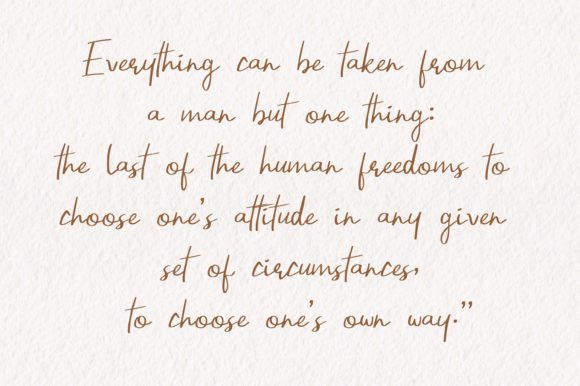 Everything can be taken from
a man but one thing:
the last of the human freedoms to
choose one's attitude in any given
set of circumstances,
to choose one's own way."